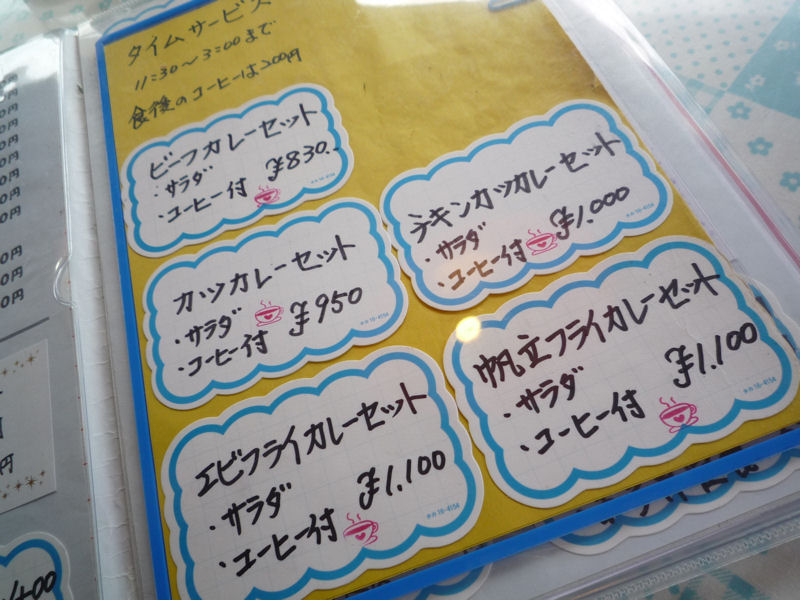 タイムサービス
11:30〜3:00まで
食後のコーヒーは200円
ビーフカレーセット
・サラダ
・コーヒー付 ¥830.
チキンカツカレーセット
・サラダ
・コーヒー付 ¥1.000
カツカレーセット
・サラダ
・コーヒー付 ¥950
帆立フライカレーセット
・サラダ
・コーヒー付 ¥1.100
エビフライカレーセット
・サラダ
・コーヒー付 ¥1.100